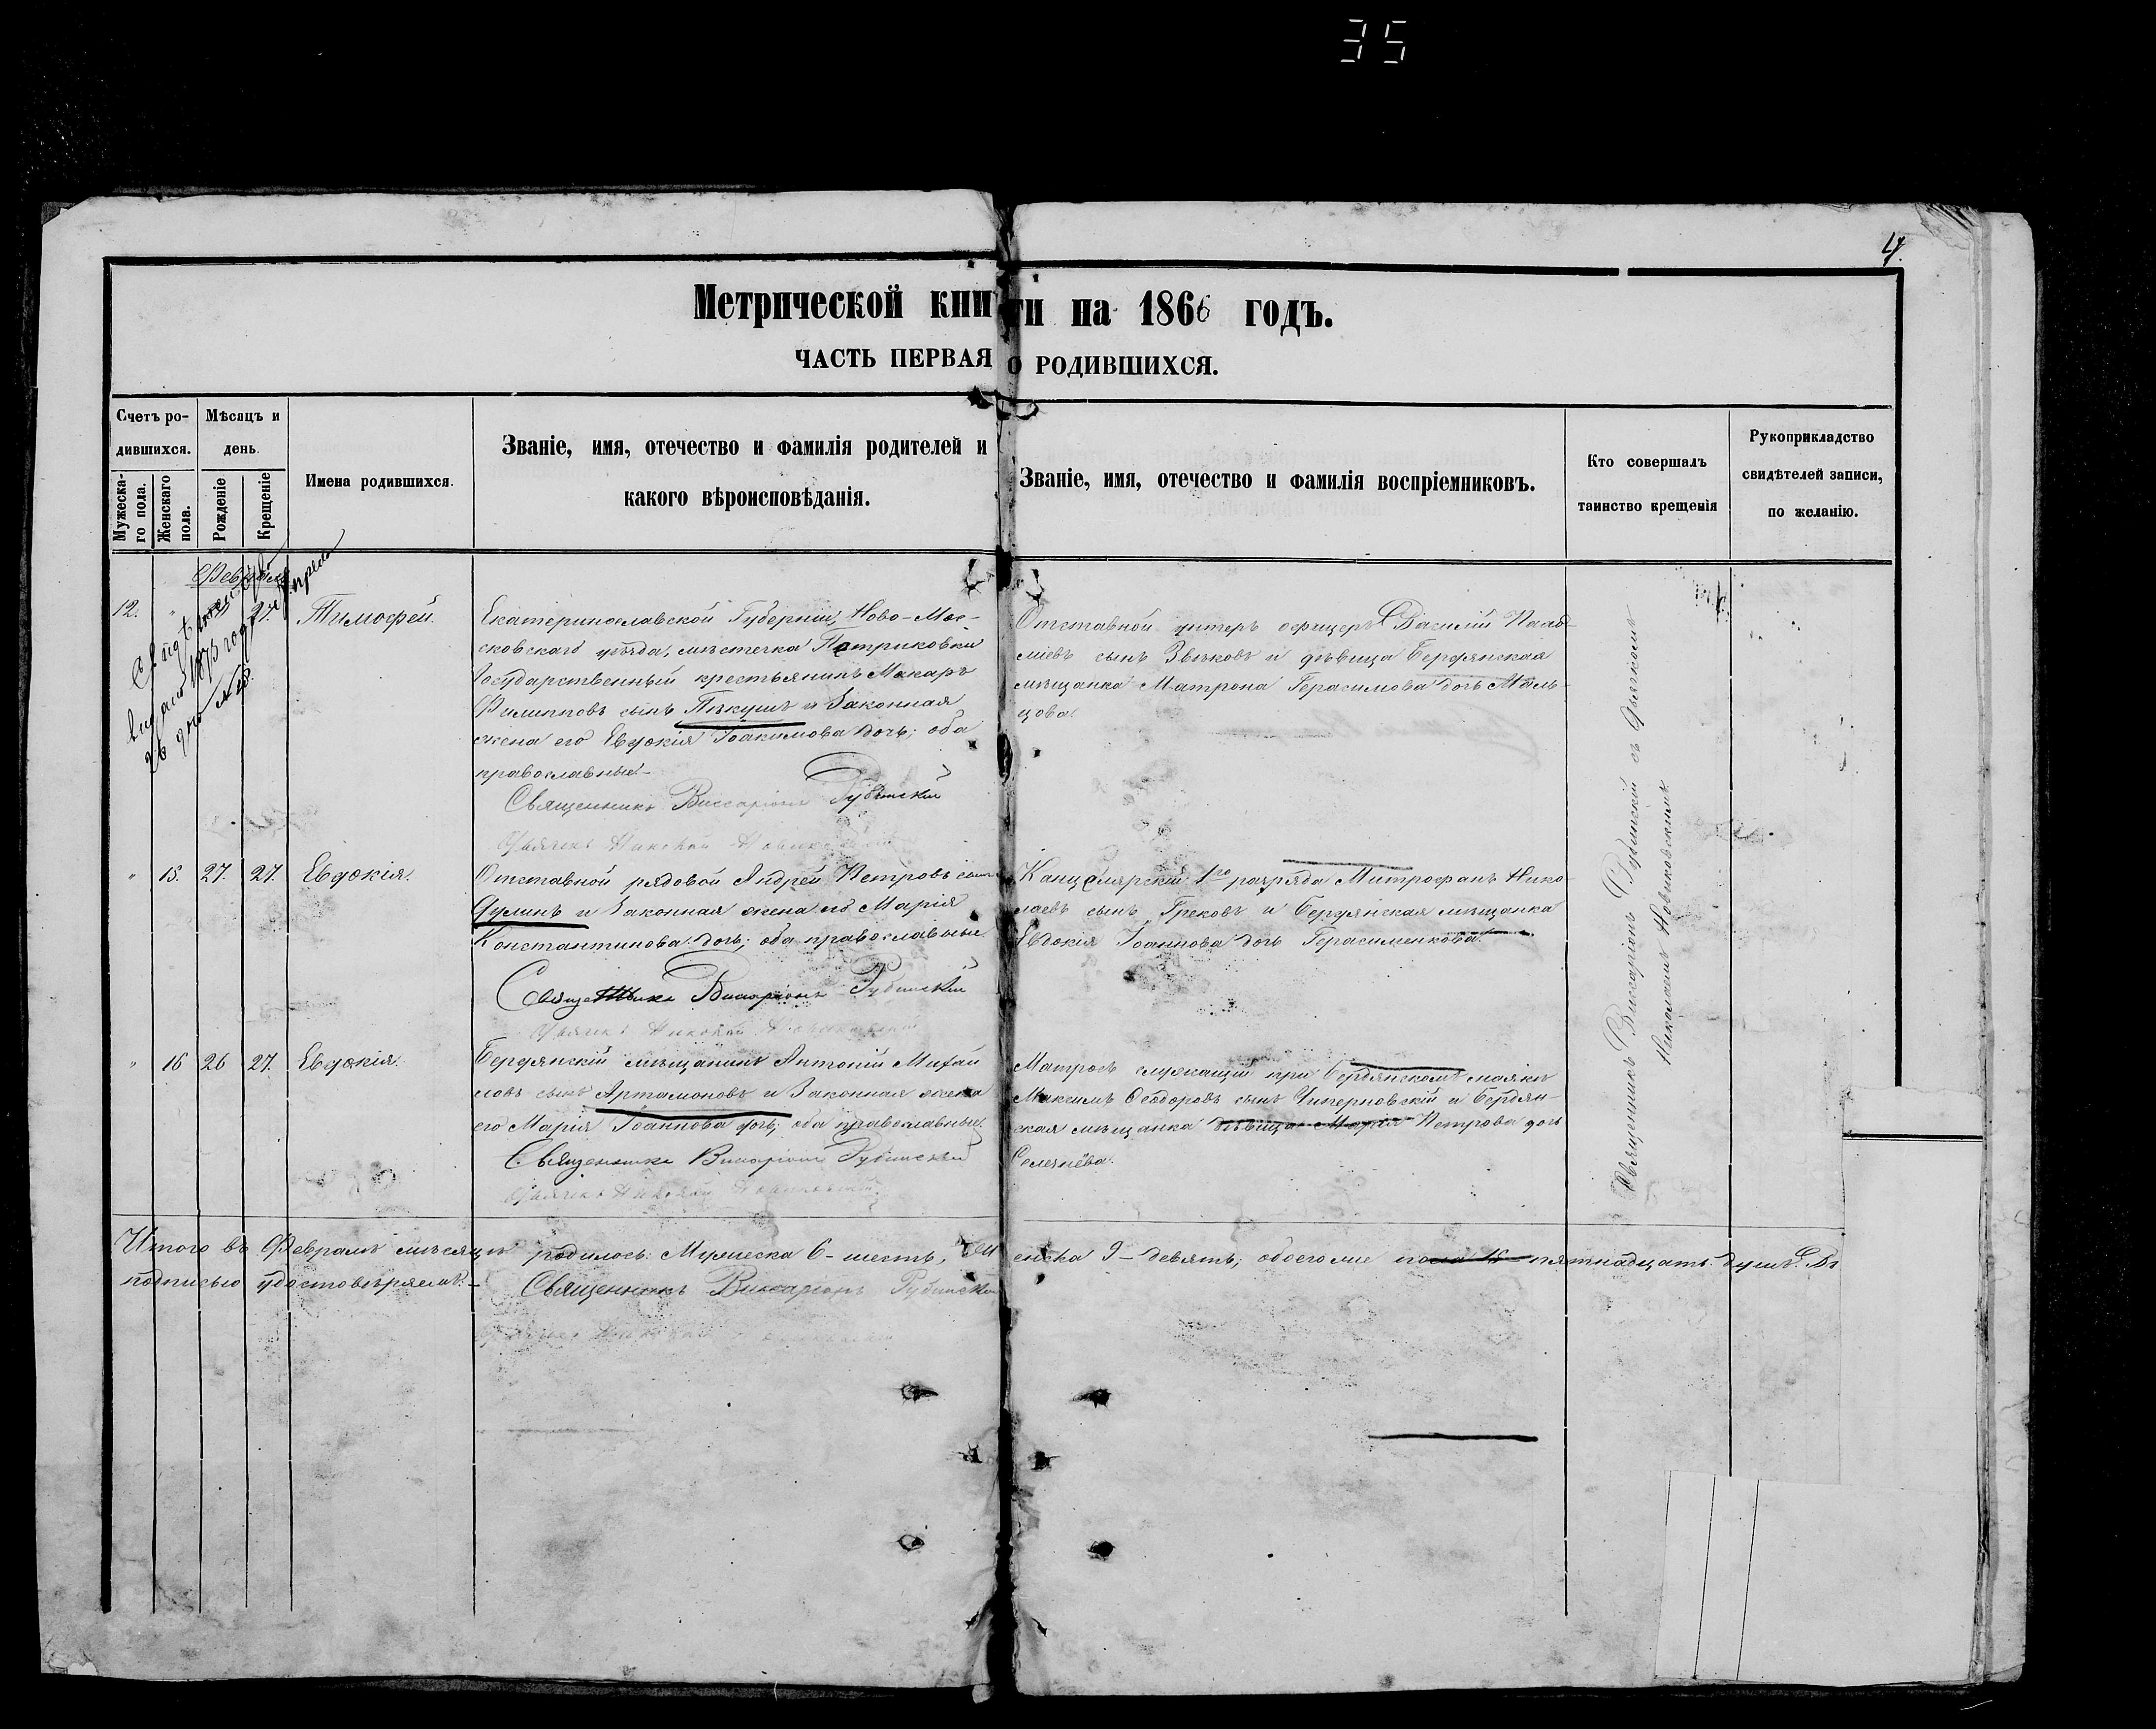 35
4.
Метрической книги на 1866 годъ.
ЧАСТЬ ПЕРВАЯ О РОДИВШИХСЯ.
Счетъ ро-
дившихся.
Мужеска-
го пола.
Женскаго
пола.
Мѣсяцъ и
день.
Рожденіе
Крещеніе
Имена родившихся.
Званіе, имя, отечество и фамилія родителей и
какого вѣроисповѣданія.
Званіе, имя, отечество и фамилія воспріемниковъ.
Кто совершалъ
таинство крещенія
Рукоприкладство
свидѣтелей записи,
по желанію.
Февраль
12. " 27. Тимофей.
1873 года
Апрѣля
Екатеринославской Губерніи, Ново-Мос-
сковскаго уѣзда, мѣстечка Петриковки
Государственный крестьянинъ Макаръ
Филипповъ сынъ и Законная
жена его Евдокія Іоакимова дочь; оба
православные.
Священникъ Виссаріонъ Рубинскій
Дьячекъ Николай
Отставной унтеръ офицеръ Василій
сынъ Звѣковъ и дѣвица Бердянская
мѣщанка Матрона Герасимова дочь Маль-
цова.
" 15. 27. 27. Евдокія.
Отставной рядовой Андрей Петровъ сынъ
и Законная жена его Марія
Константинова дочь; оба православные
Священникъ Виссаріонъ Рубинскій
Дьячекъ Николай
Канцелярскій 1го разряда Митрофанъ Нико-
лаевъ сынъ Грековъ и Бердянская мѣщанка
Евдокія Іоаннова дочь Герасименкова.
" 16 26 27. Евдокія.
Бердянскій мѣщанинъ Антоній Михай
ловъ сынъ Артамоновъ и Законная жена
его Марія Іоаннова дочь; оба православные.
Священникъ Виссаріонъ Рубинскій
Дьячекъ Николай
Матросъ служащій при Бердянскомъ маякѣ
Максимъ Ѳеодоровъ сынъ и Бердян-
ская мѣщанка дѣвица Марія Петрова дочь
Священникъ Виссаріонъ Рубинскій съ дьячкомъ
Николаемъ Новиковскимъ.
Итого въ Февралѣ мѣсяцѣ родилось: Мужеска 6-шесть, Женска 9-девять; обоего же пола 15-пятнадцать душъ.
подписью удостовѣряемъ:-
Священникъ Виссаріонъ Рубинскій